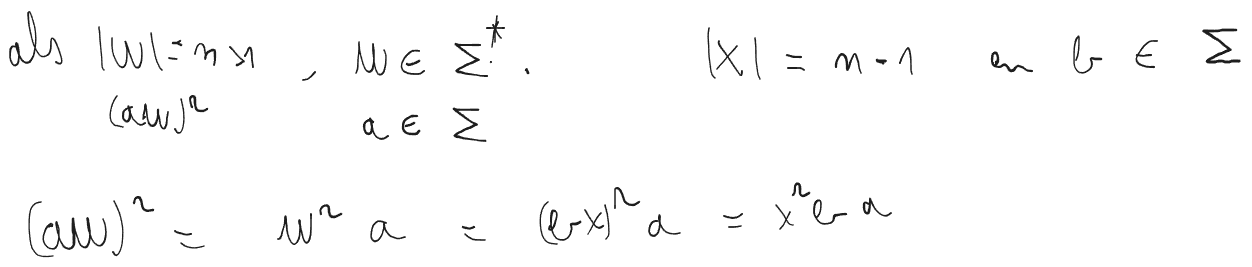 als |w| = n > 1 , w ∈ Σ* . |x| = n - 1 en b ∈ Σ
(aw)^r a ∈ Σ
(aw)^r = w^r a = (bx)^r a = x^r b a